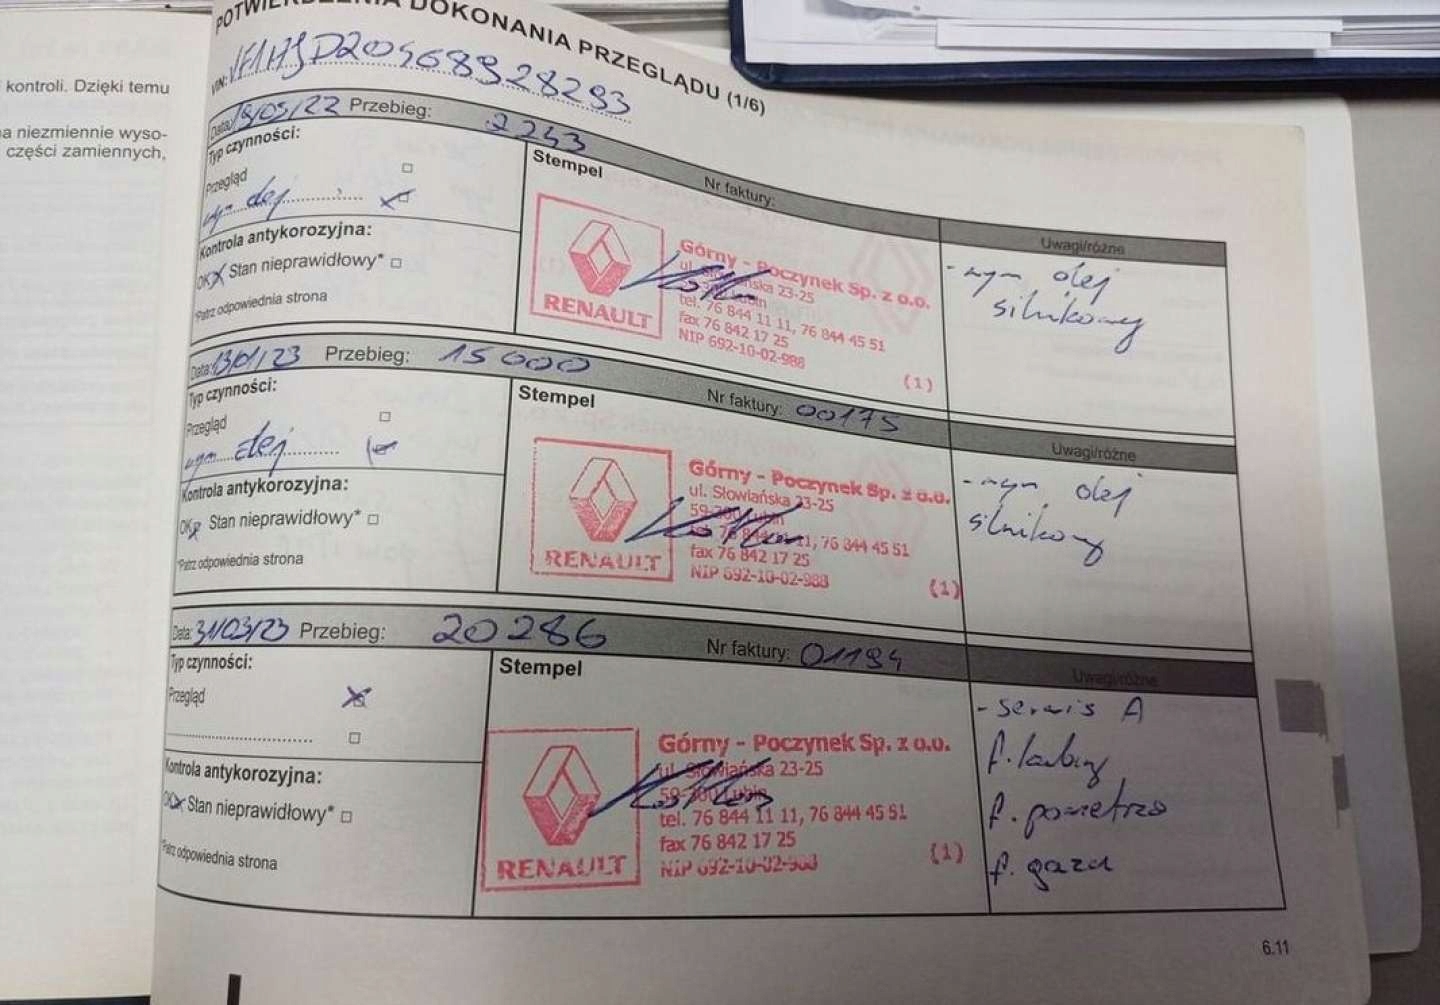 kontroli. Dzięki temu
na niezmiennie wyso-
części zamiennych,
POTWIERDZENIA DOKONANIA PRZEGLĄDU (1/6)
VIN:
Data: 19/05/22 Przebieg: 2253
Typ czynności:
Przegląd
wym olej
Kontrola antykorozyjna:
OK Stan nieprawidłowy*
*Patrz odpowiednia strona
Stempel
Nr faktury:
RENAULT
Górny - Poczynek Sp. z o.o.
ul. Słowiańska 23-25
59-300 Lubin
tel. 76 844 11 11, 76 844 45 51
fax 76 842 17 25
NIP 692-10-02-988
(1)
Uwagi/różne
- wym olej
silnikowy
Data: 13/01/23 Przebieg: 15 000
Typ czynności:
Przegląd
wym olej
Kontrola antykorozyjna:
OK Stan nieprawidłowy*
*Patrz odpowiednia strona
Stempel
Nr faktury: 00175
RENAULT
Górny - Poczynek Sp. z o.o.
ul. Słowiańska 23-25
59-300 Lubin
tel. 76 844 11 11, 76 844 45 51
fax 76 842 17 25
NIP 692-10-02-988
(1)
Uwagi/różne
- wym olej
silnikowy
Data: 31/03/23 Przebieg: 20286
Typ czynności:
Przegląd
Kontrola antykorozyjna:
OK Stan nieprawidłowy*
*Patrz odpowiednia strona
Stempel
Nr faktury: 01194
RENAULT
Górny - Poczynek Sp. z o.o.
ul. Słowiańska 23-25
59-300 Lubin
tel. 76 844 11 11, 76 844 45 51
fax 76 842 17 25
NIP 692-10-02-988
(1)
Uwagi/różne
- serwis A
f. kabiny
f. powietrza
f. gazu
6.11